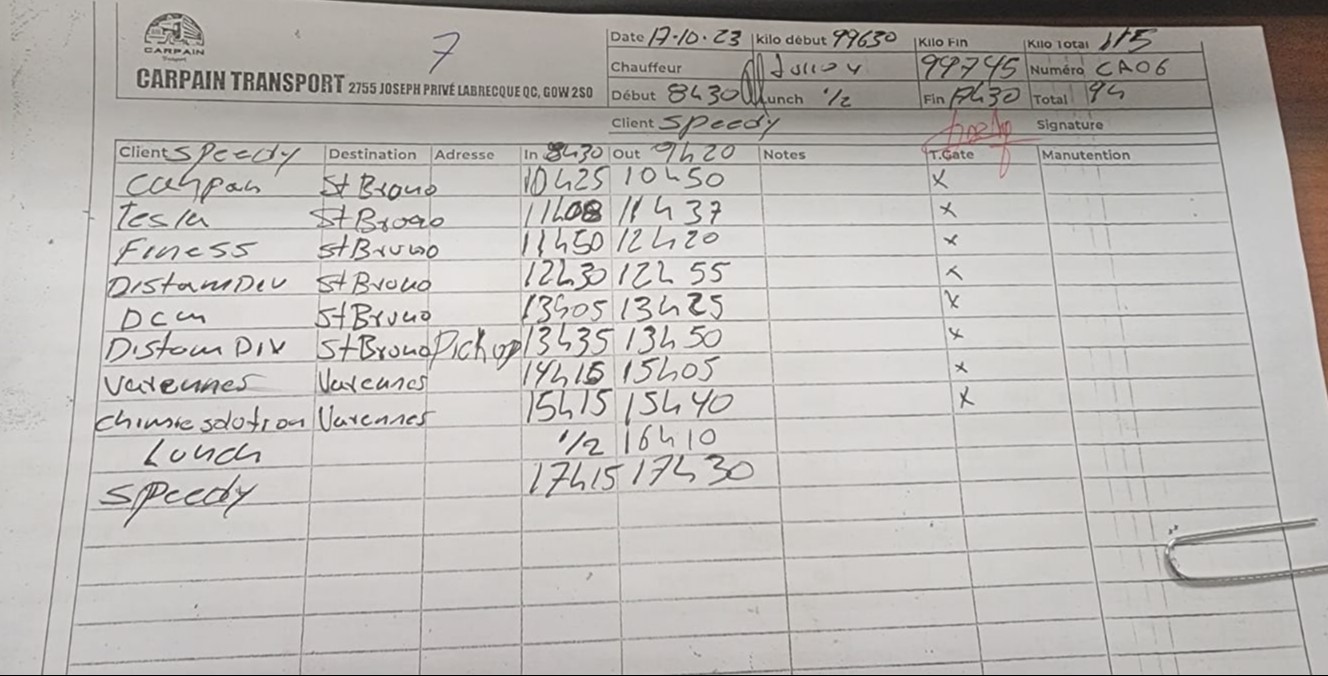 7
CARPAIN
Transport
CARPAIN TRANSPORT 2755 JOSEPH PRIVÉ LABRECQUE QC, G0W 2S0
Date 17-10-23 kilo début 99630 Kilo Fin 99745 Kilo Total 115
Chauffeur Numéro CA06
Début 8h30 Lunch 1/2 Fin 17h30 Total 9h
Client Speedy Signature
Client Speedy Destination Adresse In 8h30 Out 9h20 Notes T.Gate Manutention
St Bruno 10h25 10h50 x
Tesla St Bruno 11h08 11h37 x
Finess St Bruno 11h50 12h20 x
DistamDiv St Bruno 12h30 12h55 x
Dcm St Bruno 13h05 13h25 x
Distam Div St Bruno Pickup 13h35 13h50 x
Varennes Varennes 14h15 15h05 x
chimie solution Varennes 15h15 15h40 x
Lunch 1/2 16h10
Speedy 17h15 17h30